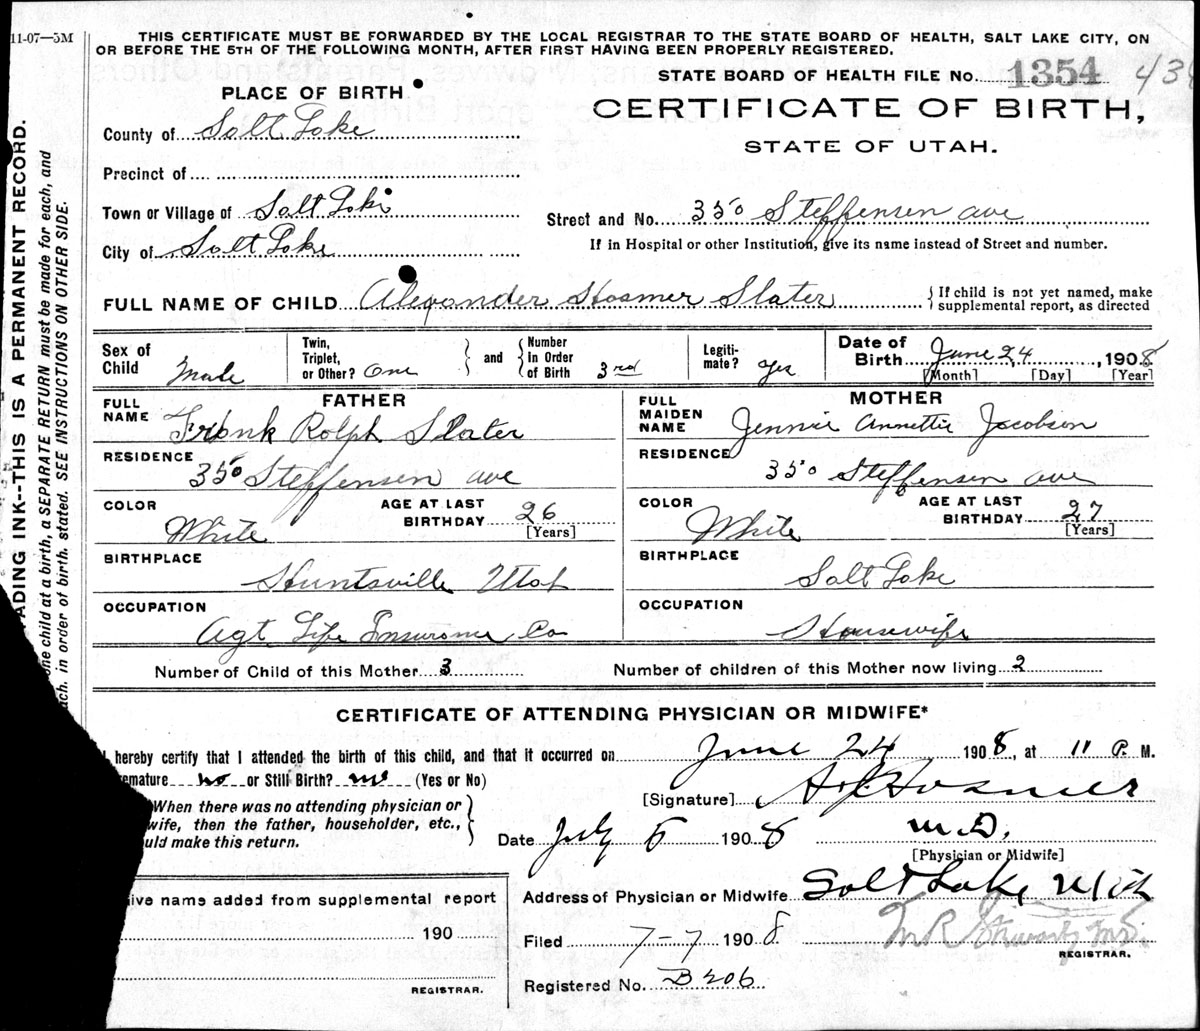 11-07—5M
THIS CERTIFICATE MUST BE FORWARDED BY THE LOCAL REGISTRAR TO THE STATE BOARD OF HEALTH, SALT LAKE CITY, ON
OR BEFORE THE 5TH OF THE FOLLOWING MONTH, AFTER FIRST HAVING BEEN PROPERLY REGISTERED.
STATE BOARD OF HEALTH FILE No. 1354
PLACE OF BIRTH
CERTIFICATE OF BIRTH,
STATE OF UTAH.
County of Salt Lake
Precinct of
Town or Village of Salt Lake
Street and No. 350 Steffensen ave
City of Salt Lake
If in Hospital or other Institution, give its name instead of Street and number.
FULL NAME OF CHILD Alexander Hosmer Slater
If child is not yet named, make
supplemental report, as directed
Sex of Child Male
Twin, Triplet, or Other? One and Number In Order of Birth 3rd
Legiti-mate? Yes
Date of Birth June 24, 1908
[Month] [Day] [Year]
FATHER
FULL NAME Frank Rolph Slater
MOTHER
FULL MAIDEN NAME Jennie Annettie Jacobson
RESIDENCE 350 Steffensen ave
RESIDENCE 350 Steffensen ave
COLOR White
AGE AT LAST BIRTHDAY 26 [Years]
COLOR White
AGE AT LAST BIRTHDAY 27 [Years]
BIRTHPLACE Huntsville Utah
BIRTHPLACE Salt Lake
OCCUPATION Agt. Life Insurance Co
OCCUPATION Housewife
Number of Child of this Mother 3
Number of children of this Mother now living 2
CERTIFICATE OF ATTENDING PHYSICIAN OR MIDWIFE*
hereby certify that I attended the birth of this child, and that it occurred on June 24 1908, at 11 P. M.
emature no or Still Birth? no (Yes or No)
[Signature] Hosmer
When there was no attending physician or
wife, then the father, householder, etc.,
uld make this return.
Date July 6 1908 M.D.
[Physician or Midwife]
Address of Physician or Midwife Salt Lake Utah
ive name added from supplemental report
190
REGISTRAR.
Filed 7-7 1908
REGISTRAR.
Registered No. B206
ADING INK--THIS IS A PERMANENT RECORD.
one child at a birth, a SEPARATE RETURN must be made for each, and
ach. in order of birth. stated. SEE INSTRUCTIONS ON OTHER SIDE.